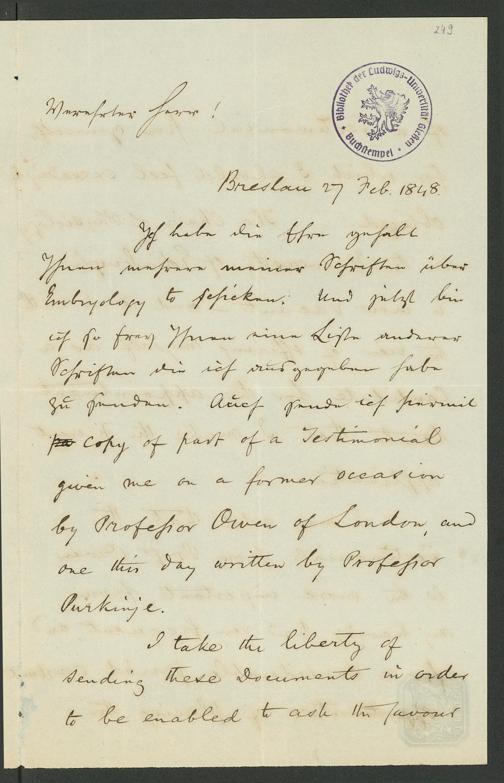 249
Bibliothek der Ludwigs-Universität Giessen
Buchstempel
Verehrter Herr!
Breslau 27 Feb. 1848.
Ich habe die Ehre gehabt
Ihnen mehrere meiner Schriften über
Embryology to schicken; Und jetzt bin
ich so frey Ihnen eine Liste anderer
Schriften die ich ausgegeben habe
zu senden. Auch sende ich hiermit
copy of part of a Testimonial
given me on a former occasion
by Professor Owen of London, and
one this day written by Professor
Purkinje.
I take the liberty of
sending these Documents in order
to be enabled to ask the favour